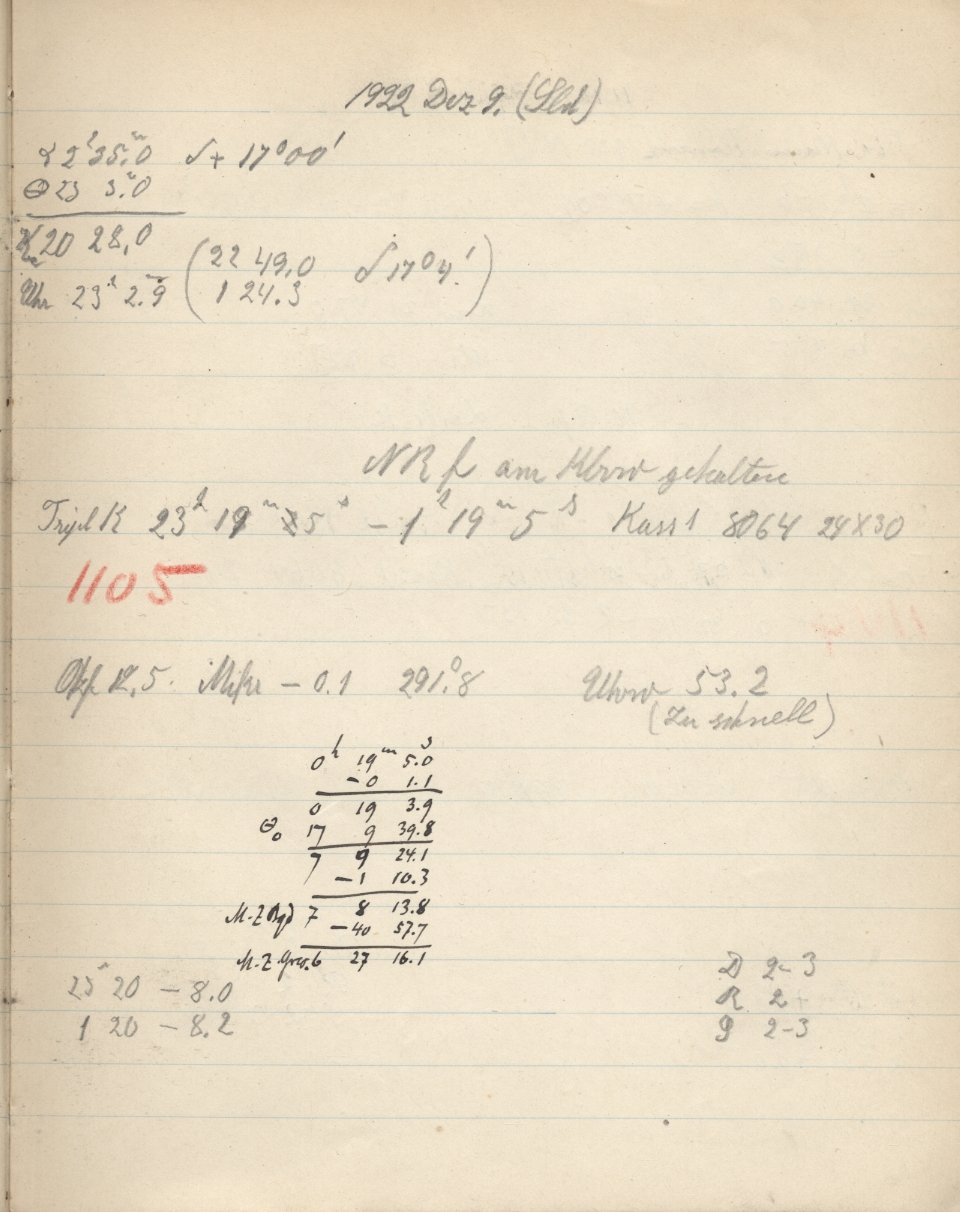 1922 Dez 9. (Sbd)
α 2ʰ 35ᵐ.0 δ + 17⁰ 00'
Θ 23 3ᵐ.0
20 28,0
Uhr 23ʰ 2.ᵐ9 (22 49,0 δ 17⁰ 4.')
1 24.3
NR f am gehalten
Tripl K 23ʰ 19ᵐ 5ˢ – 1ʰ 19ᵐ 5ˢ Kass 1 8064 24 x 30
1105
Okf 12,5. Mikr – 0.1 291.⁰8 53.2
(zu schnell)
0ʰ 19ᵐ 5.0ˢ
– 0 1.1
0 19 3.9
Θ₀ 17 9 39.8
7 9 24.1
– 1 10.3
M.Z. Bgd 7 8 13.8
– 40 57.7
M.Z. Grw. 6 27 16.1
23ʰ 20 – 8.0
1 20 – 8.2
D 2–3
R 2+
g 2–3